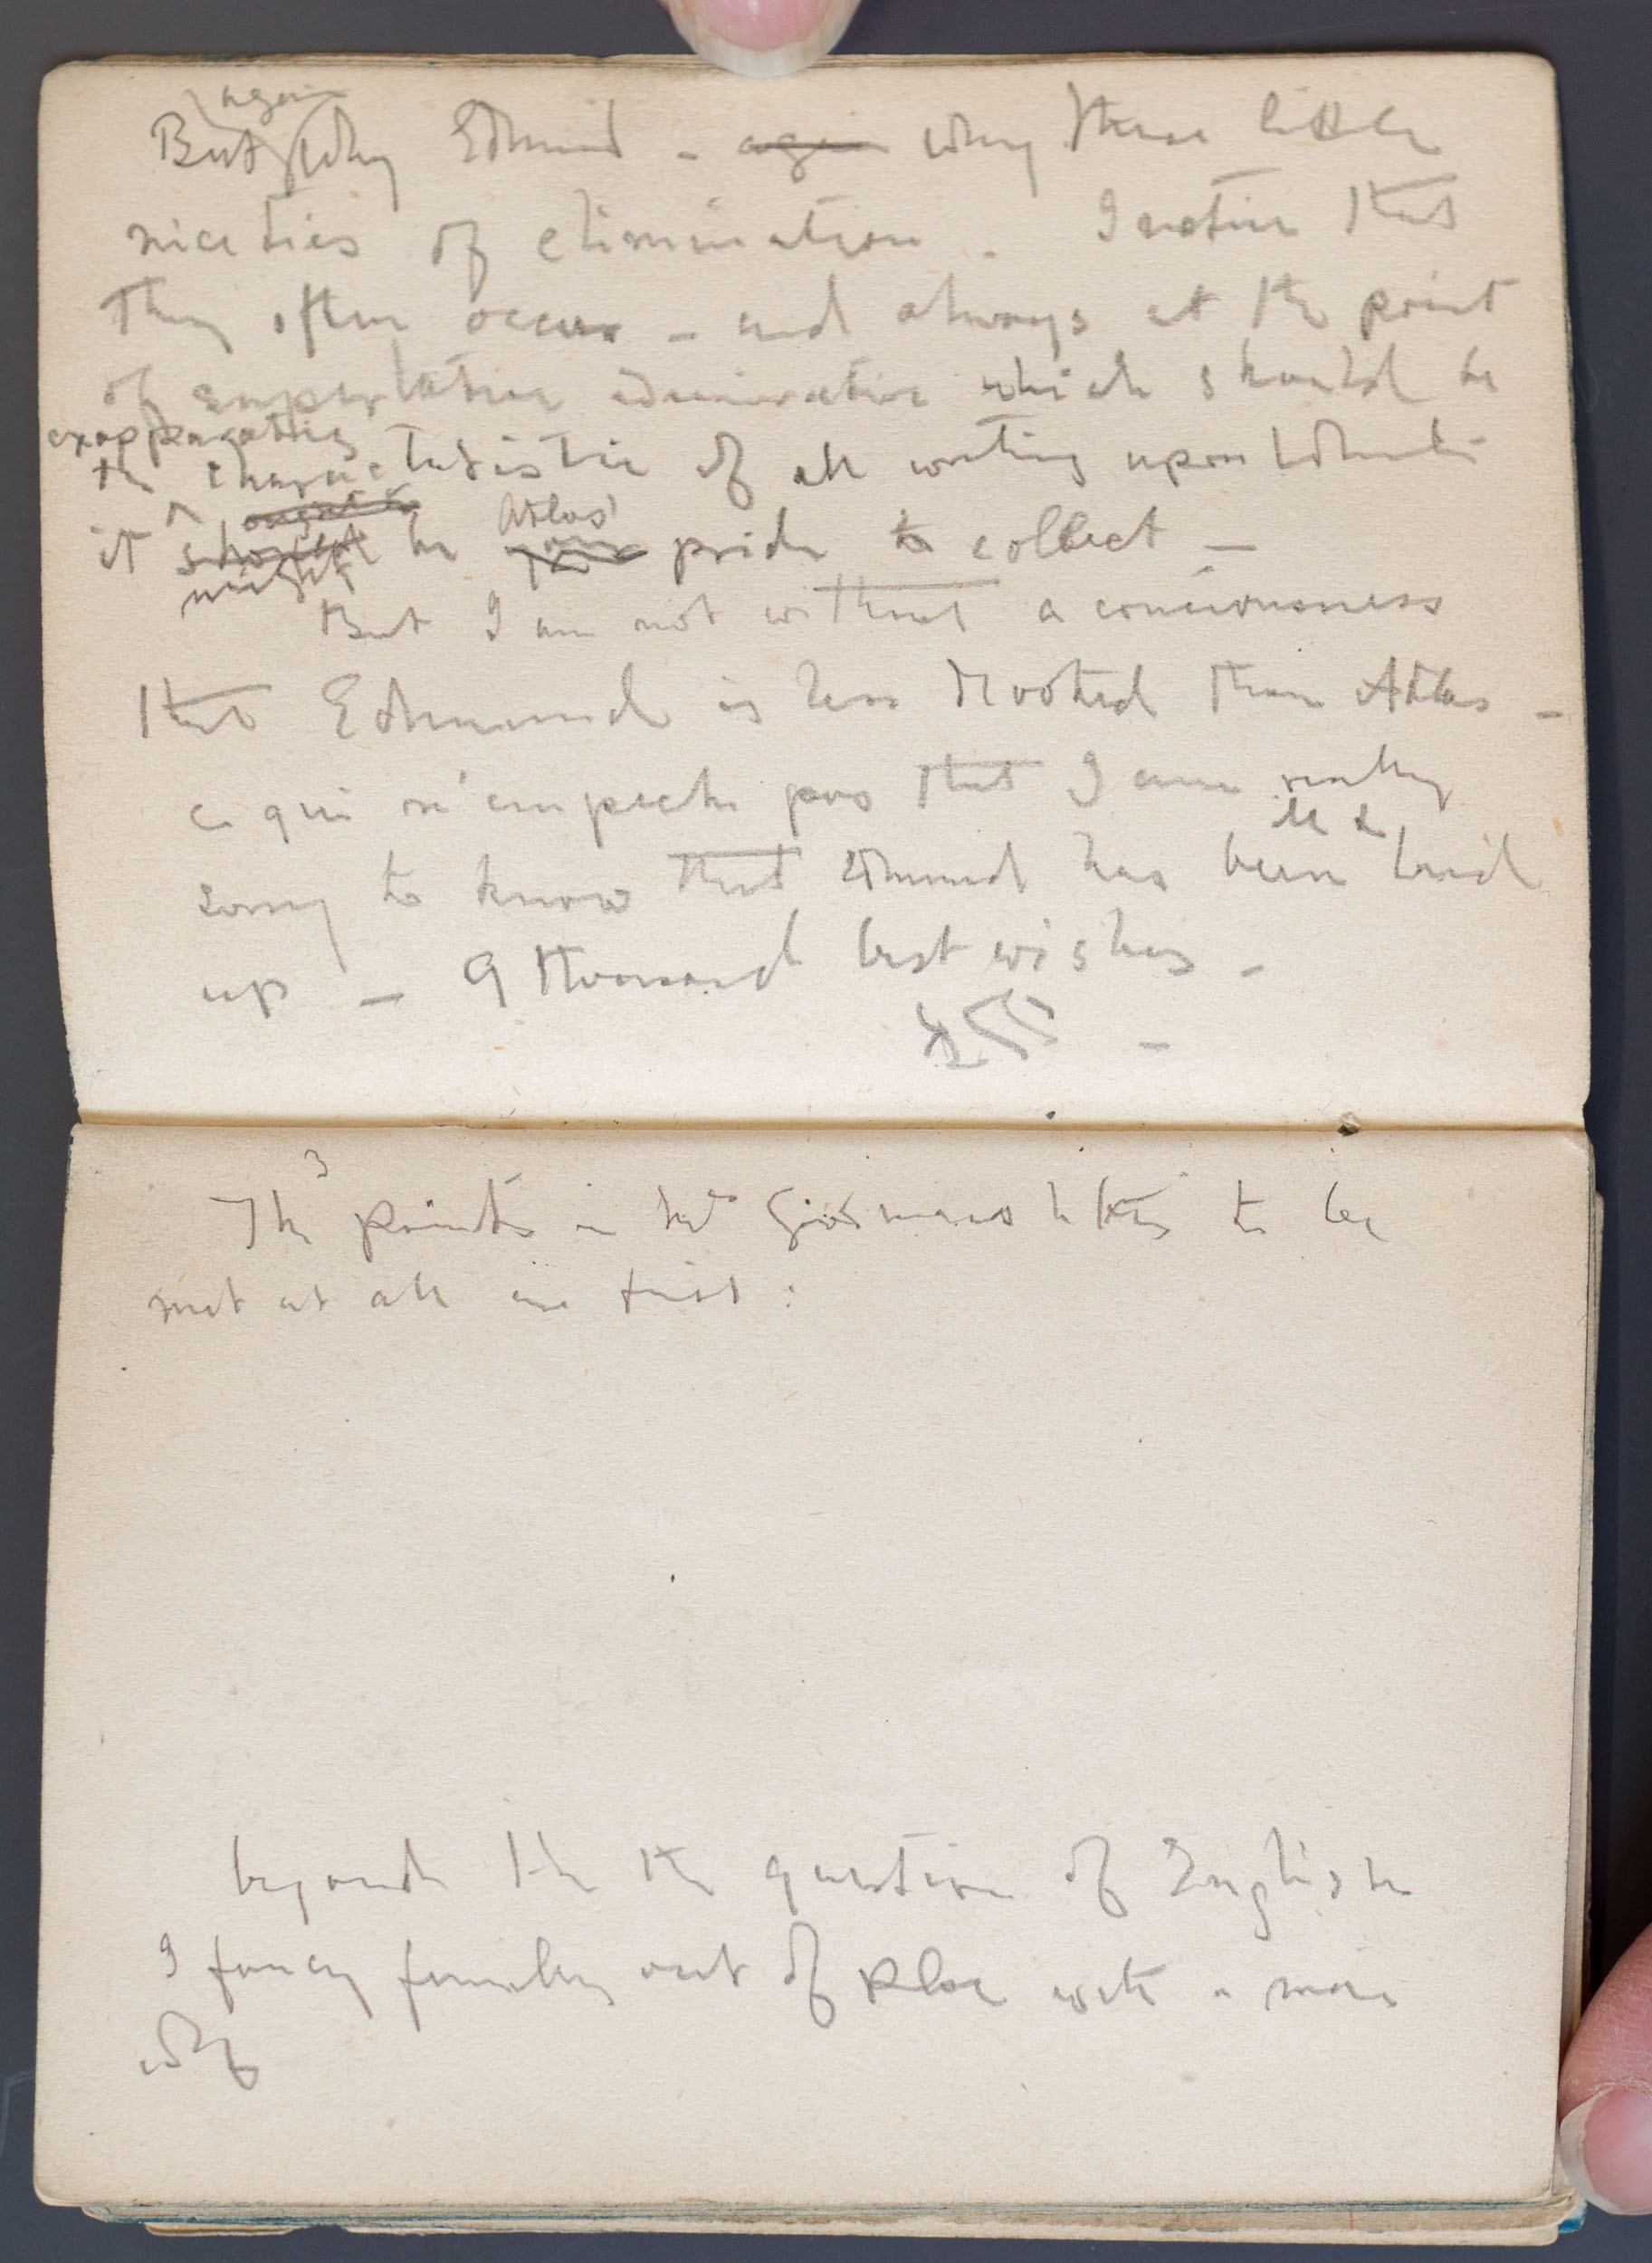 again
But why Edmund - again why these little
niceties of elimination - I notice that
they often occur - and always at the point
of superlative admiration which should be
exaggerating
the characteristic of all writing upon
ought to Atlas'
it should be your pride to collect -
might
But I am not without a conciousness
that Edmund is less devoted than Atlas -
ce qui n'empeche pas that I am really
ill &
sorry to know that Edmund has been laid
up - A thousand best wishes -
3
The points in letters to be
met at all are first :
beyond the the question of English
I fancy out of place with a more